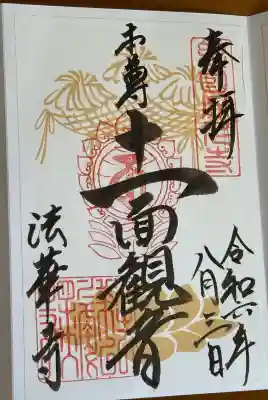 奉拝
令和六年
八月二日
本尊
十一面観音
法華寺